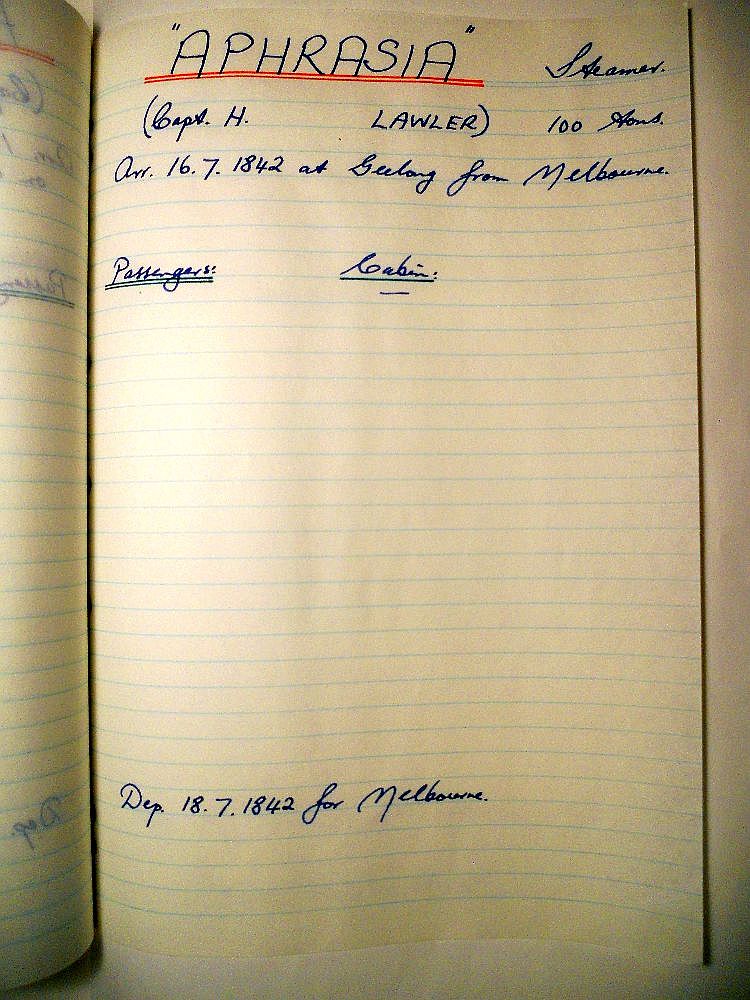 "APHRASIA" Steamer.
(Capt. H. LAWLER) 100 tons.
Arr. 16.7.1842 at Geelong from Melbourne.
Passengers: Cabin:
Dep. 18.7.1842 for Melbourne.